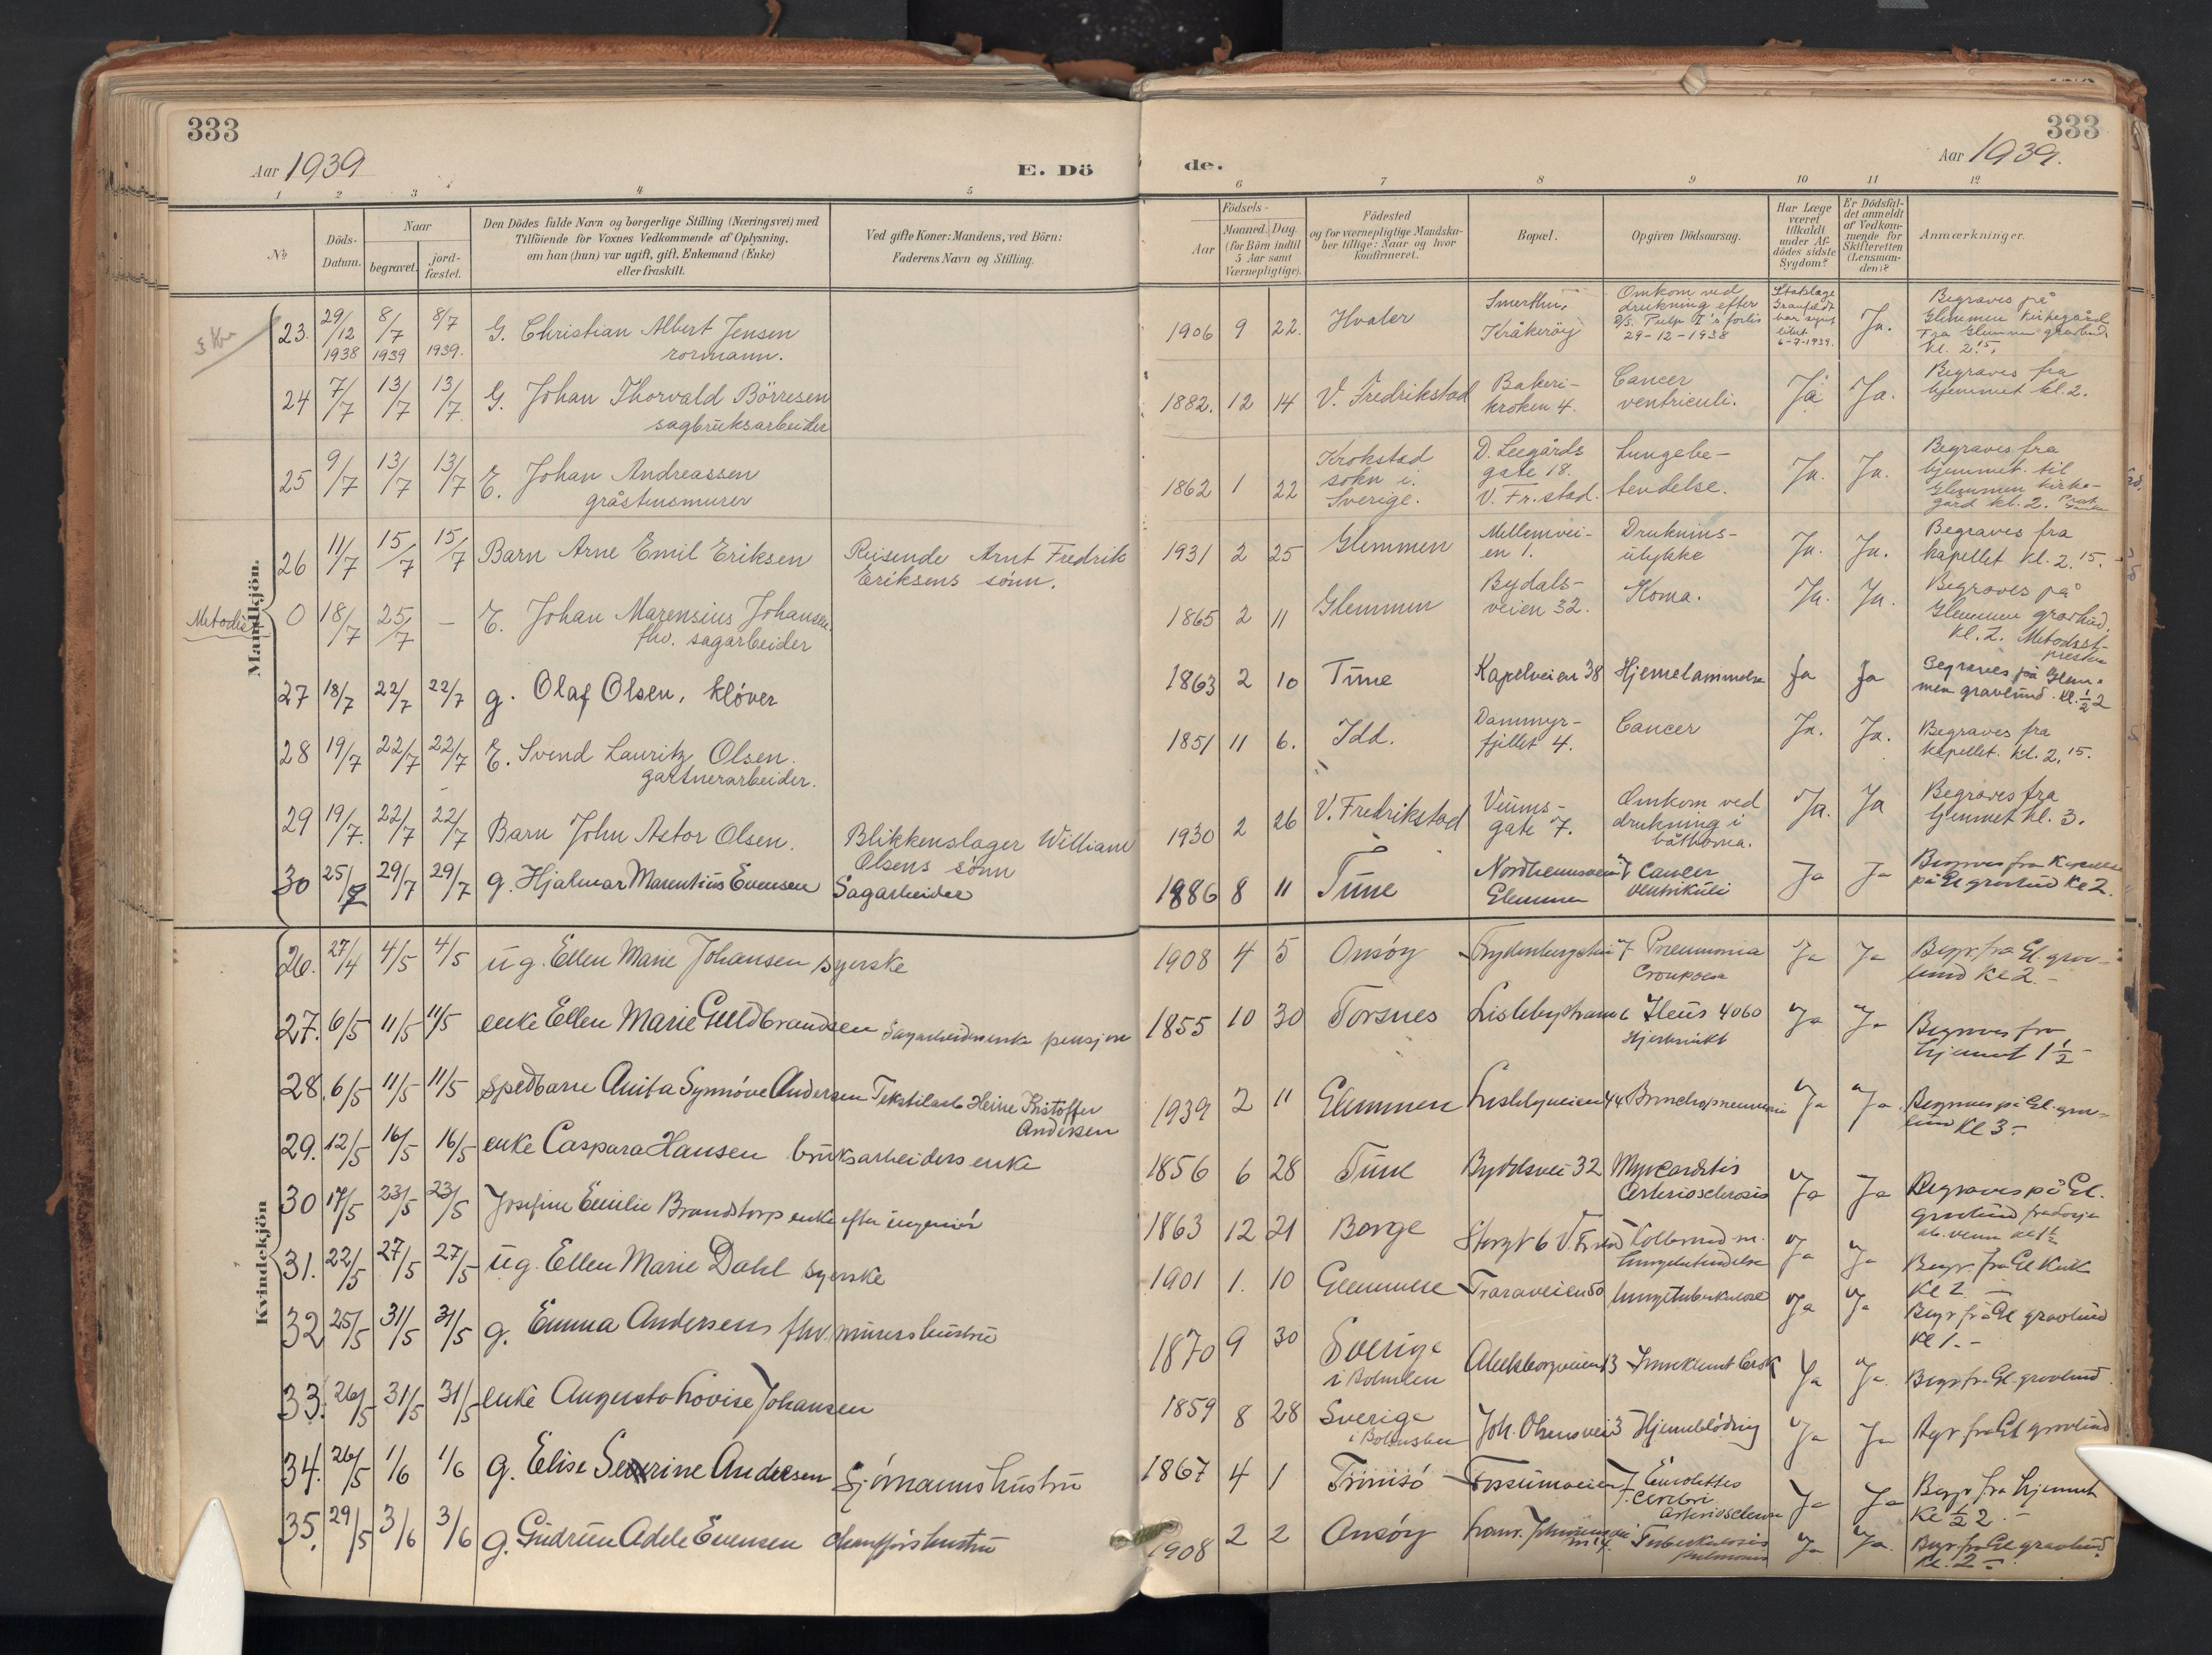 333
Aar 1939
E. Dö
de.
333
Aar 1939.
1 2 3 4 5 6 7 8 9 10 11 12
No
Döds-Datum.
Naar
begravet. jordfæstet.
Den Dödes fulde Navn og borgerlige Stilling (Næringsvei) med
Tilföiende for Voxnes Vedkommende af Oplysning,
om han (hun) var ugift, gift, Enkemand (Enke)
eller fraskilt.
Ved gifte Koner: Mandens, ved Börn:
Faderens Navn og Stilling.
Födsels-
Aar
Maaned. Dag.
(for Börn indtil
5 Aar samt
Værnepligtige).
Födested
og for værnepligtige Mandska-
ber tillige: Naar og hvor
konfirmeret.
Bopæl.
Opgiven Dödsaarsag.
Har Læge
været
tilkaldt
under Af-
dödes sidste
Sygdom?
Er Dödsfal-
det anmeldt
af Vedkom-
mende for
Skifteretten
(Lensman-
den)?
Anmærkninger.
Mandkjön.
23. 29/12 1938 8/7 1939 8/7 1939. G. Christian Albert Jensen
rormann.
1906 9 22. Hvaler
Kråkeröy
Omkom ved
drukning efter
D/S. Pulp I's forlis
29-12-1938
6-7-1939.
Ja.
Begraves på
Glemmen kirkegård
Fra Glemmen gravlund
kl. 2.15.
24 7/7 13/7 13/7 G. Johan Thorvald Börresen
sagbruksarbeider
1882. 12 14 V. Fredrikstad
Bakeri-
kroken 4.
Cancer
ventriculi.
Ja Ja.
Begraves fra
hjemmet kl. 2.
25 9/7 13/7 13/7 E. Johan Andreassen
gråstensmurer
1862 1 22
Krokstad
sokn i
Sverige.
D. Leegårds
gate 18.
V. Fr.stad.
Lungebe-
tendelse.
Ja. Ja.
Begraves fra
hjemmet til
Glemmen kirke-
gård kl. 2.
26 11/7 15/7 15/7 Barn Arne Emil Eriksen
Reisende Arnt Fredrik
Eriksens sönn.
1931 2 25 Glemmen
Mellemvei-
en 1.
Druknins-
ulykke
Ja. Ja.
Begraves fra
kapellet kl. 2.15.
Metodist
0 18/7 25/7 – E. Johan Marensius Johansen
fhv. sagarbeider
1865 2 11 Glemmen
Bydals-
veien 32.
Koma.
Ja. Ja.
Begraves på
Glemmen gravlund.
kl. 2. Metodist-
presten
27 18/7 22/7 22/7 g. Olaf Olsen, klöver
1863 2 10 Tune Kapelveien 38 Hjernelammelse Ja Ja
Begraves på Glem-
men gravlund. kl. ½ 2
28 19/7 22/7 22/7 E. Svend Lauritz Olsen.
gartnerarbeider.
1851 11 6. Idd.
Dammyr-
fjellet 4.
Cancer
Ja. Ja.
Begraves fra
kapellet. kl. 2,15.
29 19/7. 22/7 22/7 Barn John Astor Olsen.
Blikkenslager William
Olsens sönn
1930 2 26 V. Fredrikstad
Veums-
gate 7.
Omkom ved
drukning i
Ja. Ja
Begraves fra
hjemmet kl. 3.
30 25/7 29/7 29/7 g. Hjalmar Marentius Evensen Sagarbeider
1886 8 11 Tune
Glemmen
Cancer
ventrikuli
Ja Ja
Begraves fra Kapellet
på Gl gravlund Kl 2.
Kvindekjön
26. 27/4 4/5 4/5 ug. Ellen Marie Johansen syerske
1908 4 5 Onsöy Frydenbergveien 7 Pneumonia
Crouposa
Ja Ja
Begr. fra Gl. grav-
lund Kl 2.-
27. 6/5 11/5 11/5 enke Ellen Marie Guldbrandsen Sagarbeidersenke pensjon
1855 10 30 Torsnes Ileus 4060
Ja Ja
Begraves fra
hjemmet 1½-
28. 6/5 11/5 11/5 spedbarn Anita Synnöve Andersen Tekstilarb Heine Kristoffer
Andersen
1939 2 11 Glemmen Lislebyveien 44 Bronchopneumoni Ja Ja.
Begraves på Gl. grav-
lund Kl 3.-
29. 12/5 16/5 16/5 enke Caspara Hansen bruksarbeiders enke
1856 6 28 Tune Byddlsvei 32 Myocarditis
Arteriosclerosis
Ja Ja
Begraves på Gl.
gravlund
30 17/5 23/5 23/5 Josefine Emilie Brandstorp enke efter ingeniör
1863 12 21 Borge Storgt 6
Lungebetendelse
Ja Ja
Begr. fra Gl Kirk
Kl 2 -
31. 22/5 27/5 27/5 ug. Ellen Marie Dahl syerske
1901 1. 10 Glemmen Traraveien 50 lungetuberkulose Ja Ja
Begr fra Gl gravlund
Kl 1.-
32 25/5 31/5 31/5 g. Emma Andersens fhv. murers hustru
1870 9 30 Sverige
Ja Ja.
Begr fra Gl. gravlund.
33. 26/5 31/5 31/5 enke Augusta Lovise Johansen
1859 8 28 Sverige
Joh. Olsensvei 3 Hjerneblödning
Ja Ja
Begr. fra Gl gravlund
34. 26/5 1/6 1/6 g. Elise Severine Andersen Sjömannshustru
1867 4 1 Tromsö Fossumveien 7
Cerebri
Arteriosclerose
Ja Ja
Begr fra hjemmet
Kl ½ 2.-
35. 29/5 3/6 3/6 g. Gudrun Adele Evensen chaufförshustru
1908 2 2 Onsöy
Tuberkulosis
pulmonis
Ja Ja.
Begr fra Gl gravlund
Kl. 2-